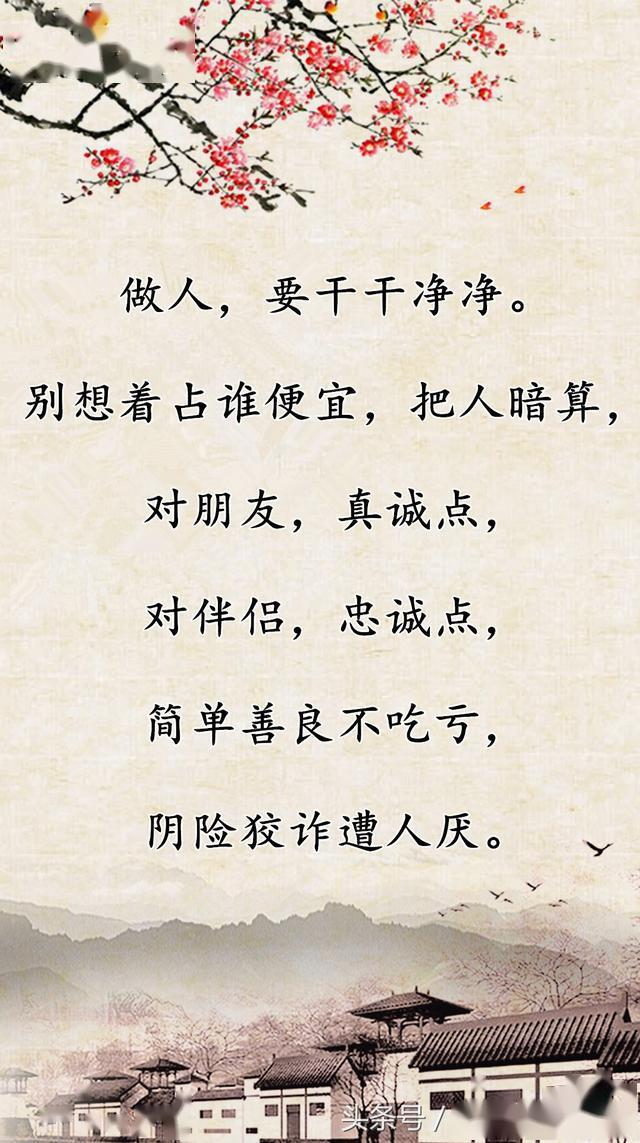 做人，要干干净净。
别想着占谁便宜，把人暗算，
对朋友，真诚点，
对伴侣，忠诚点，
简单善良不吃亏，
阴险狡诈遭人厌。
头条号 /